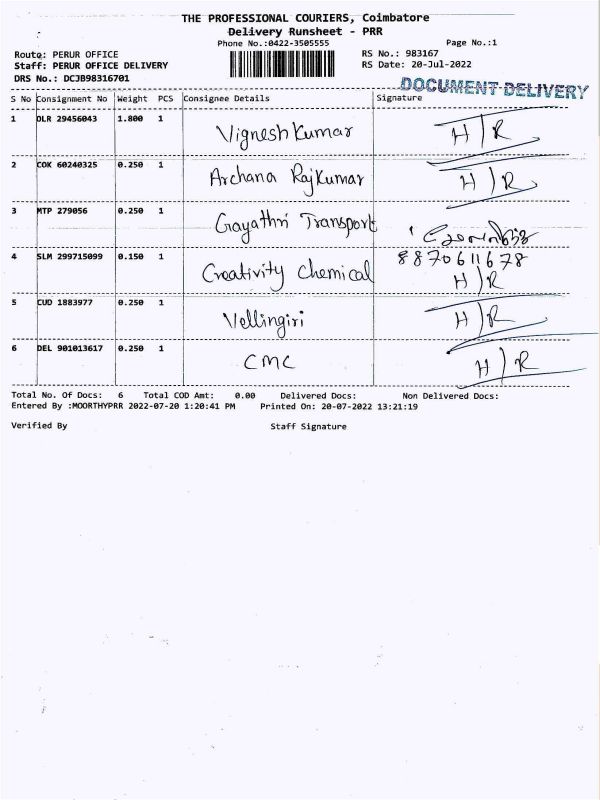 THE PROFESSIONAL COURIERS, Coimbatore
Delivery Runsheet - PRR
Phone No.:0422-3505555
Page No.:1
Route: PERUR OFFICE
RS No.: 983167
Staff: PERUR OFFICE DELIVERY
RS Date: 20-Jul-2022
DRS No.: DCJB98316701
DOCUMENT DELIVERY
S No Consignment No Weight PCS Consignee Details Signature
1 DLR 29456043 1.800 1 Vignesh Kumar H/R
2 COK 60240325 0.250 1 Archana Rajkumar H/R
3 MTP 279056 0.250 1 Gayathri Transport
8870611678
4 SLM 299715099 0.150 1 Creativity Chemical H/R
5 CUD 1883977 0.250 1 Vellingiri H/R
6 DEL 901013617 0.250 1 CMC H/R
Total No. Of Docs: 6 Total COD Amt: 0.00 Delivered Docs: Non Delivered Docs:
Entered By :MOORTHYPRR 2022-07-20 1:20:41 PM Printed On: 20-07-2022 13:21:19
Verified By Staff Signature